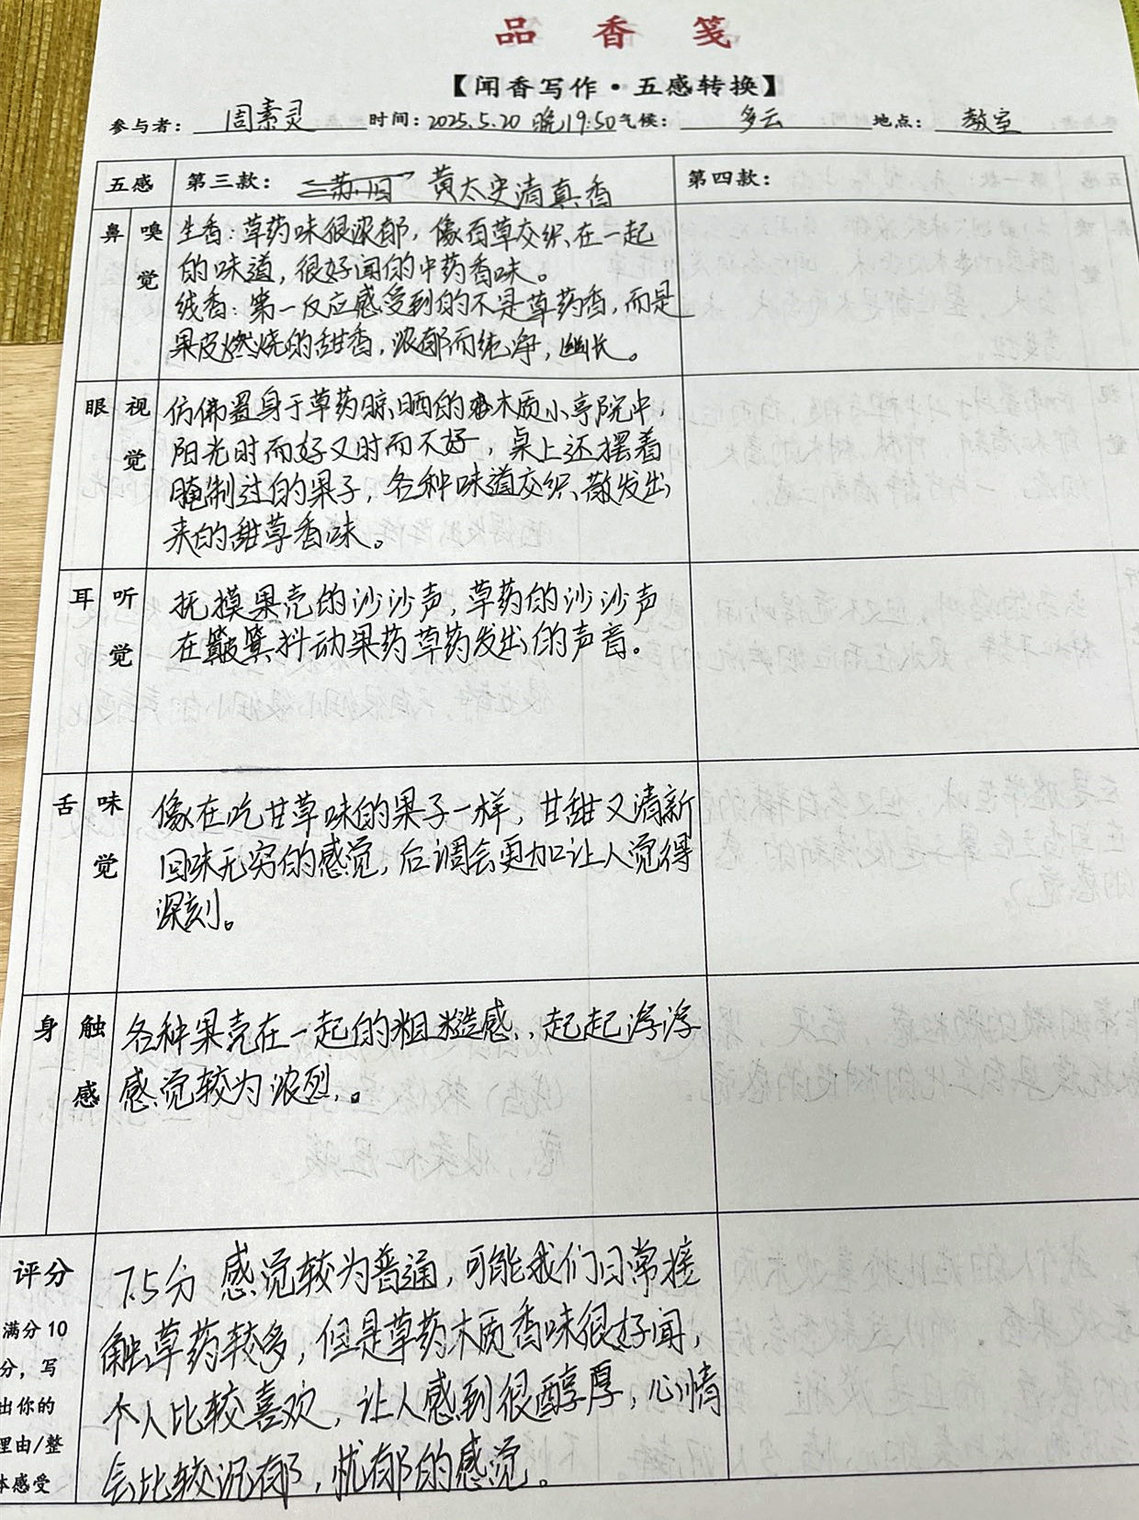 品 香 笺
【闻香写作·五感转换】
参与者: 周素灵 时间: 2025.5.20 晚19:50 气候: 多云 地点: 教室
五感 第三款: 黄太史清真香 第四款:
鼻 嗅觉
生香:草药味很浓郁,像百草交织在一起
的味道,很好闻的中药香味。
线香:第一反应感受到的不是草药香,而是
果皮燃烧的甜香,浓郁而纯净,幽长。
眼 视觉
仿佛置身于草药晾晒的木质小亭院中,
阳光时而好又时而不好,桌上还摆着
腌制过的果子,各种味道交织散发出
来的甜草香味。
耳 听觉
抚摸果壳的沙沙声,草药的沙沙声
在簸箕抖动果药草药发出的声音。
舌 味觉
像在吃甘草味的果子一样,甘甜又清新
回味无穷的感觉,后调会更加让人觉得
深刻。
身 触感
各种果壳在一起的粗糙感,起起浮浮
感觉较为浓烈。
评分
满分10
分,写
出你的
理由/整
体感受
7.5分 感觉较为普通,可能我们日常接
触草药较多,但是草药木质香味很好闻,
个人比较喜欢,让人感到很醇厚,心情
会比较沉郁,忧郁的感觉。